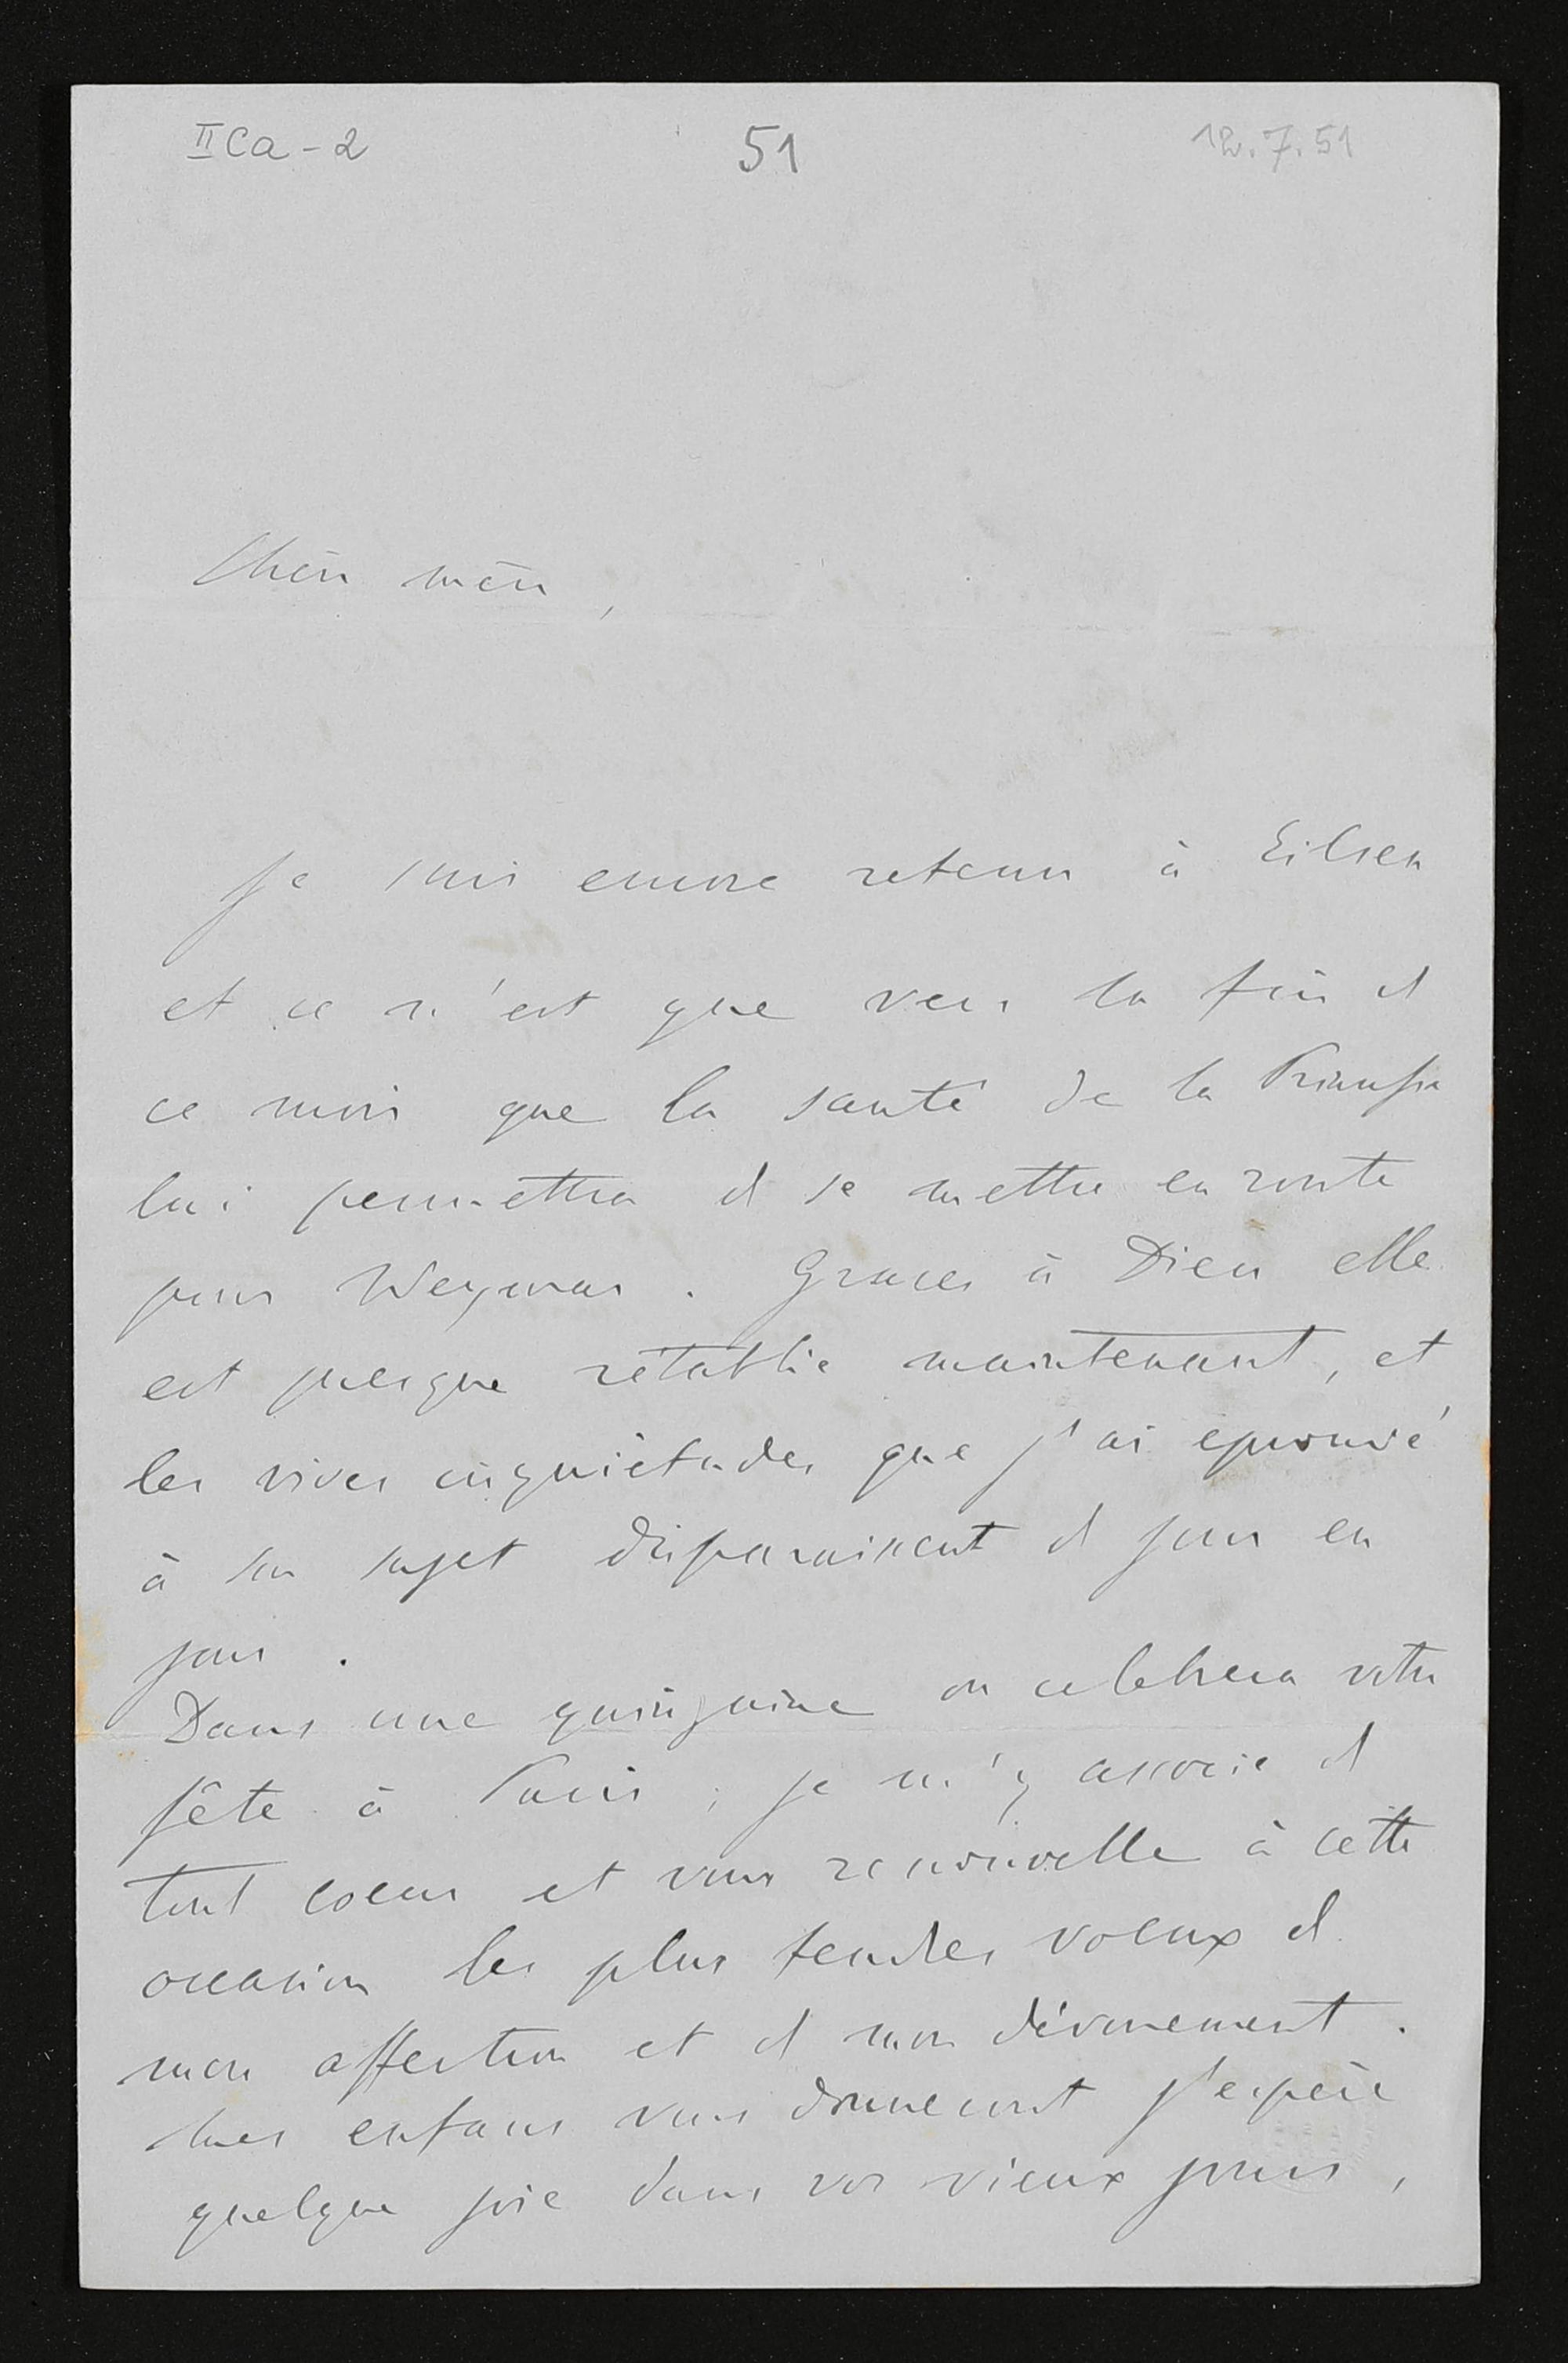 II Ca - 2
51
12.7.51
Chère mère,
Je suis encore retenu à Eilsen
et ce n'est que vers la fin de
ce mois que la santé de la Princesse
lui permettra de se mettre en route
pour Weymar. Graces à Dieu elle
est presque rétablie maintenant, et
les vives inquiétudes que j'ai eprouvé
à son sujet disparaissent de jour en
jour.
Dans une quinzaine on celebrera votre
fête à Paris; je m'y associe de
tout coeur et vous renouvelle à cette
occasion les plus tendres voeux de
mon affection et de mon dévouement.
Mes enfans vous donneront j'espère
quelque joie dans vos vieux jours,